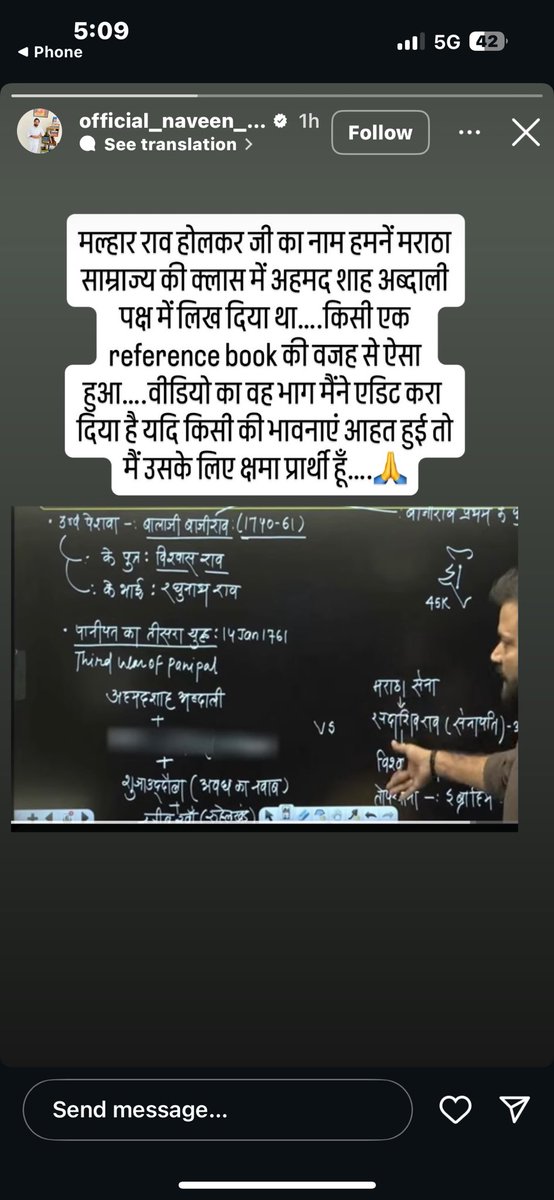 5:09
5G 42
◀ Phone
official_naveen_... 1h
Follow
See translation >
मल्हार राव होलकर जी का नाम हमनें मराठा
साम्राज्य की क्लास में अहमद शाह अब्दाली
पक्ष में लिख दिया था....किसी एक
reference book की वजह से ऐसा
हुआ....वीडियो का वह भाग मैंने एडिट करा
दिया है यदि किसी की भावनाएं आहत हुई तो
मैं उसके लिए क्षमा प्रार्थी हूँ....🙏
पेशवा -: बालाजी बाजीराव: (1740-61)
: के पुत्र : विश्वास राव
: के भाई : रघुनाथ राव
45K
• पानीपत का तीसरा युद्ध : 14 Jan 1761
Third War of Panipat
अहमदशाह अब्दाली
+
मराठा सेना
vs
सदाशिव राव (सेनापति)-
+
शुजाउद्दौला (अवध का नवाब)
विश्व
+
-: इब्राहिम
Send message...